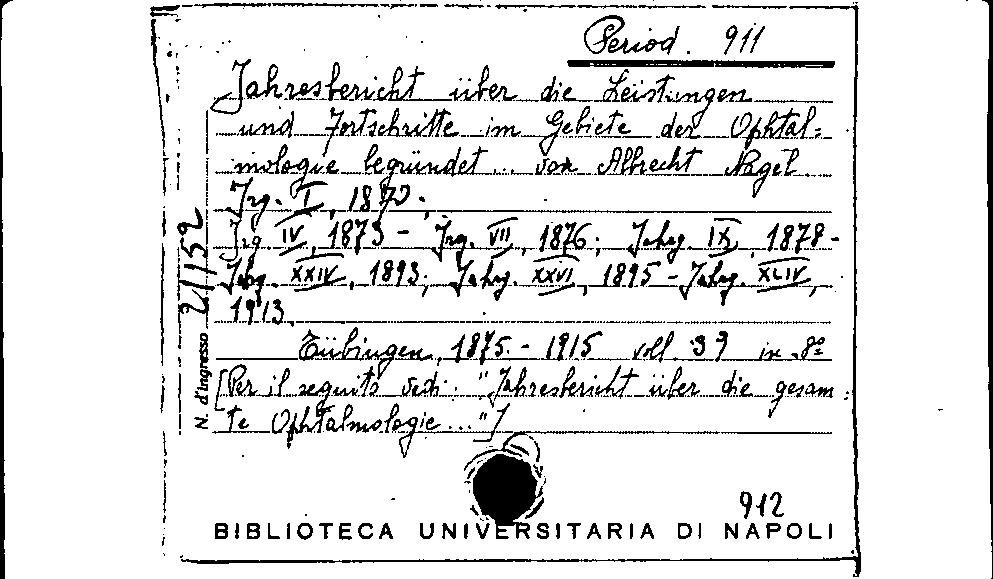 Period. 911
Jahresbericht über die Leistungen
und Fortschritte im Gebiete der Ophtal=
mologie begründet... von Albrecht Nagel.
Jrg. I, 1870.;
Jrg. IV, 1873 - Jrg. VII, 1876; Jahrg. IX, 1878 -
Jahrg. XXIV, 1893; Jahrg. XXVI, 1895 - Jahrg. XLIV,
1913.
Tübingen, 1875. - 1915 voll. 39 in 8º
[Per il seguito vedi: "Jahresbericht über die gesam=
te Ophtalmologie..."]
N. d'Ingresso 21152
912
BIBLIOTECA UNIVERSITARIA DI NAPOLI